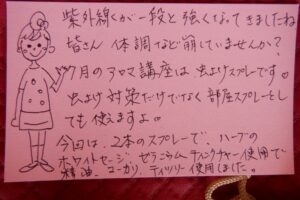 紫外線が一段と強くなってきましたね
皆さん 体調など崩していませんか?
7月のアロマ講座は 虫よけスプレーです。
虫よけ対策だけでなく 部屋スプレーとし
ても使えますよ。
今回は、2本のスプレーで、ハーブの
ホワイトセージ、ゼラニウム チンクチャー使用で
精油、ユーカリ、ティツリー 使用しました。